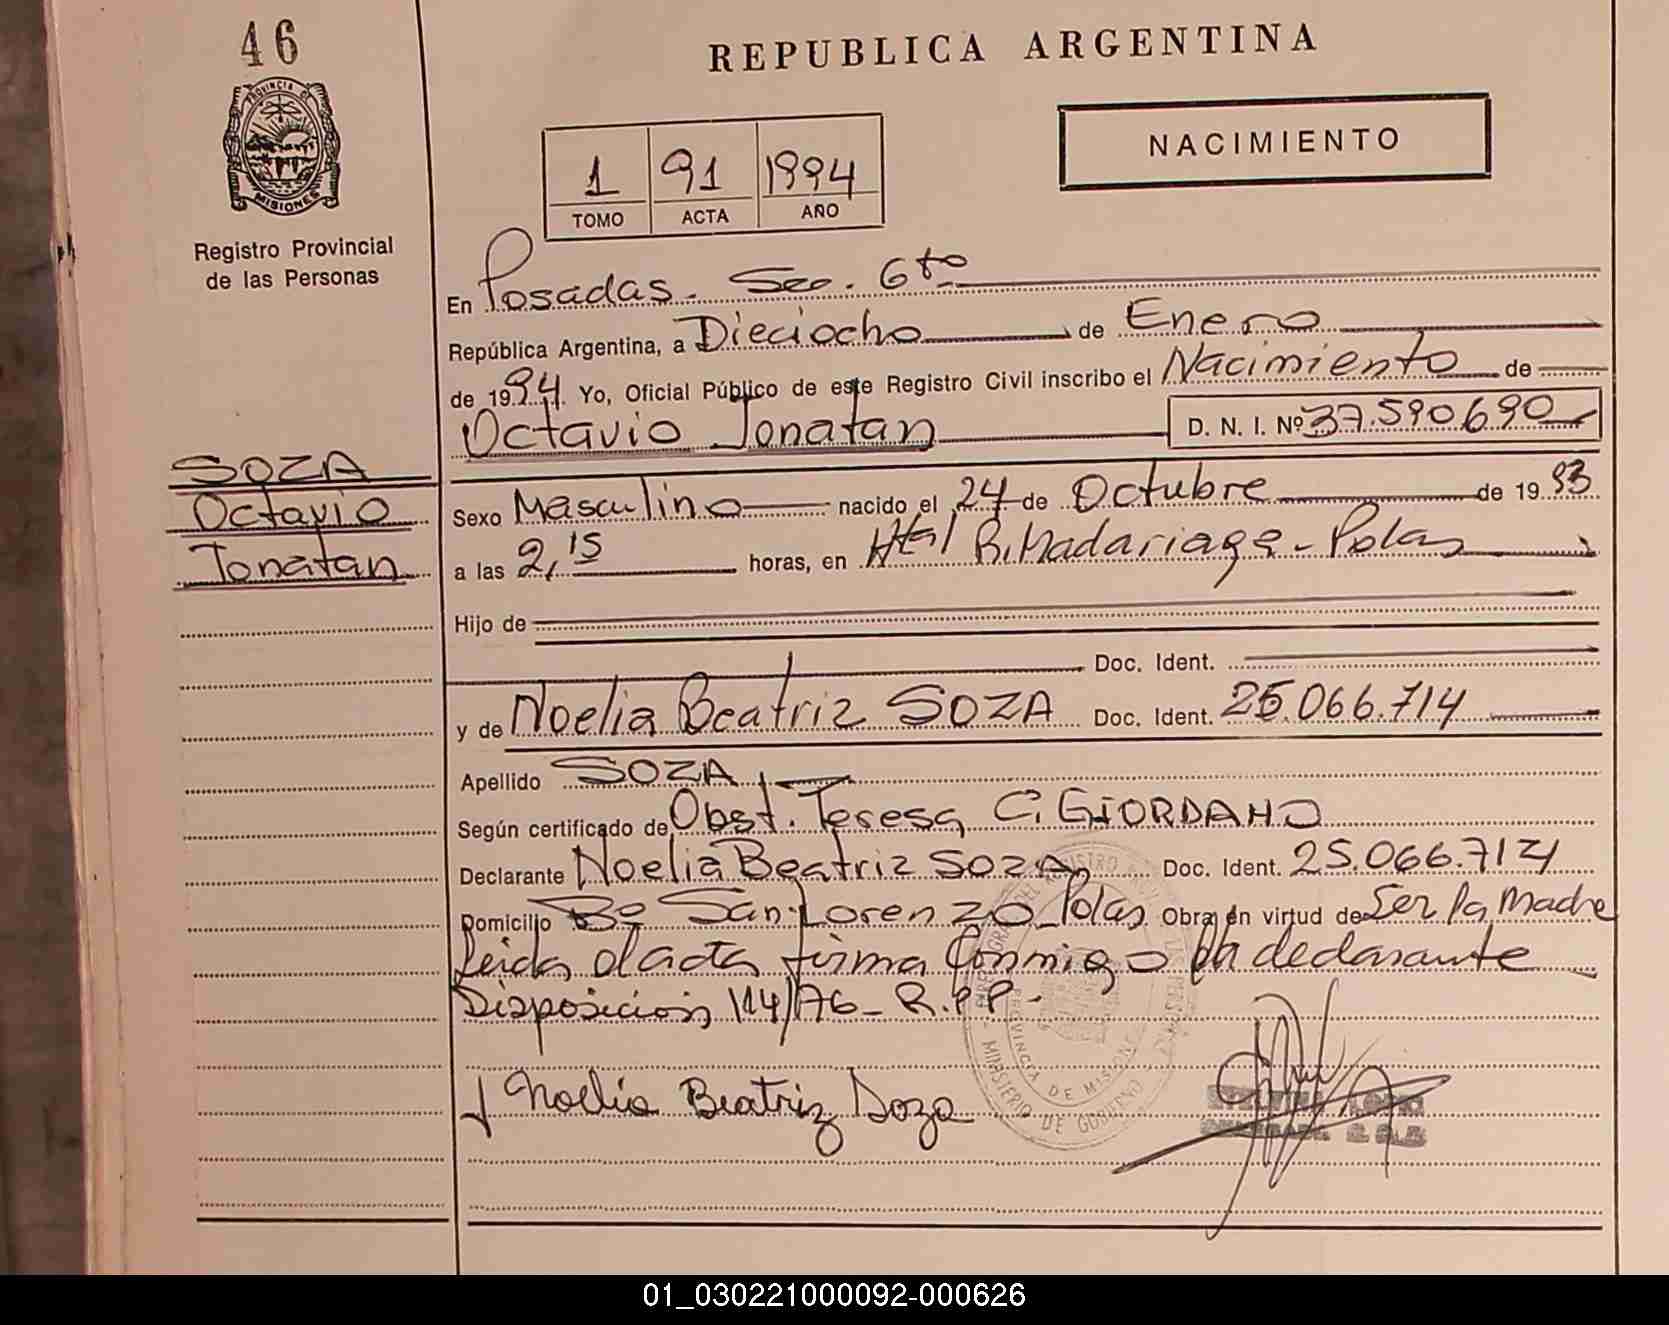 46
REPUBLICA ARGENTINA
NACIMIENTO
1 91 1994
TOMO ACTA AÑO
PROVINCIA D
MISIONES
Registro Provincial
de las Personas
En Posadas - Sec. 6ta
República Argentina, a Dieciocho de Enero
de 1994. Yo, Oficial Público de este Registro Civil inscribo el Nacimiento de
Octavio Jonatan D. N. I. Nº 37.590.690
SOZA
Octavio
Jonatan
Sexo Masculino nacido el 24 de Octubre de 1993
a las 2,15 horas, en Htal R. Madariaga - Pdas
Hijo de
Doc. Ident.
y de Noelia Beatriz SOZA Doc. Ident. 25.066.714
Apellido SOZA
Según certificado de Obst. Teresa C. GIORDANO
Declarante Noelia Beatriz SOZA Doc. Ident. 25.066.714
Domicilio Bº San Lorenzo Pdas Obra en virtud de Ser la Madre
Leida el acta firma Conmigo la declarante
Disposición 114/76 - R.P.P.-
Noelia Beatriz Soza
PROVINCIA DE MISIONES
MINISTERIO DE GOBIERNO
01_030221000092-000626